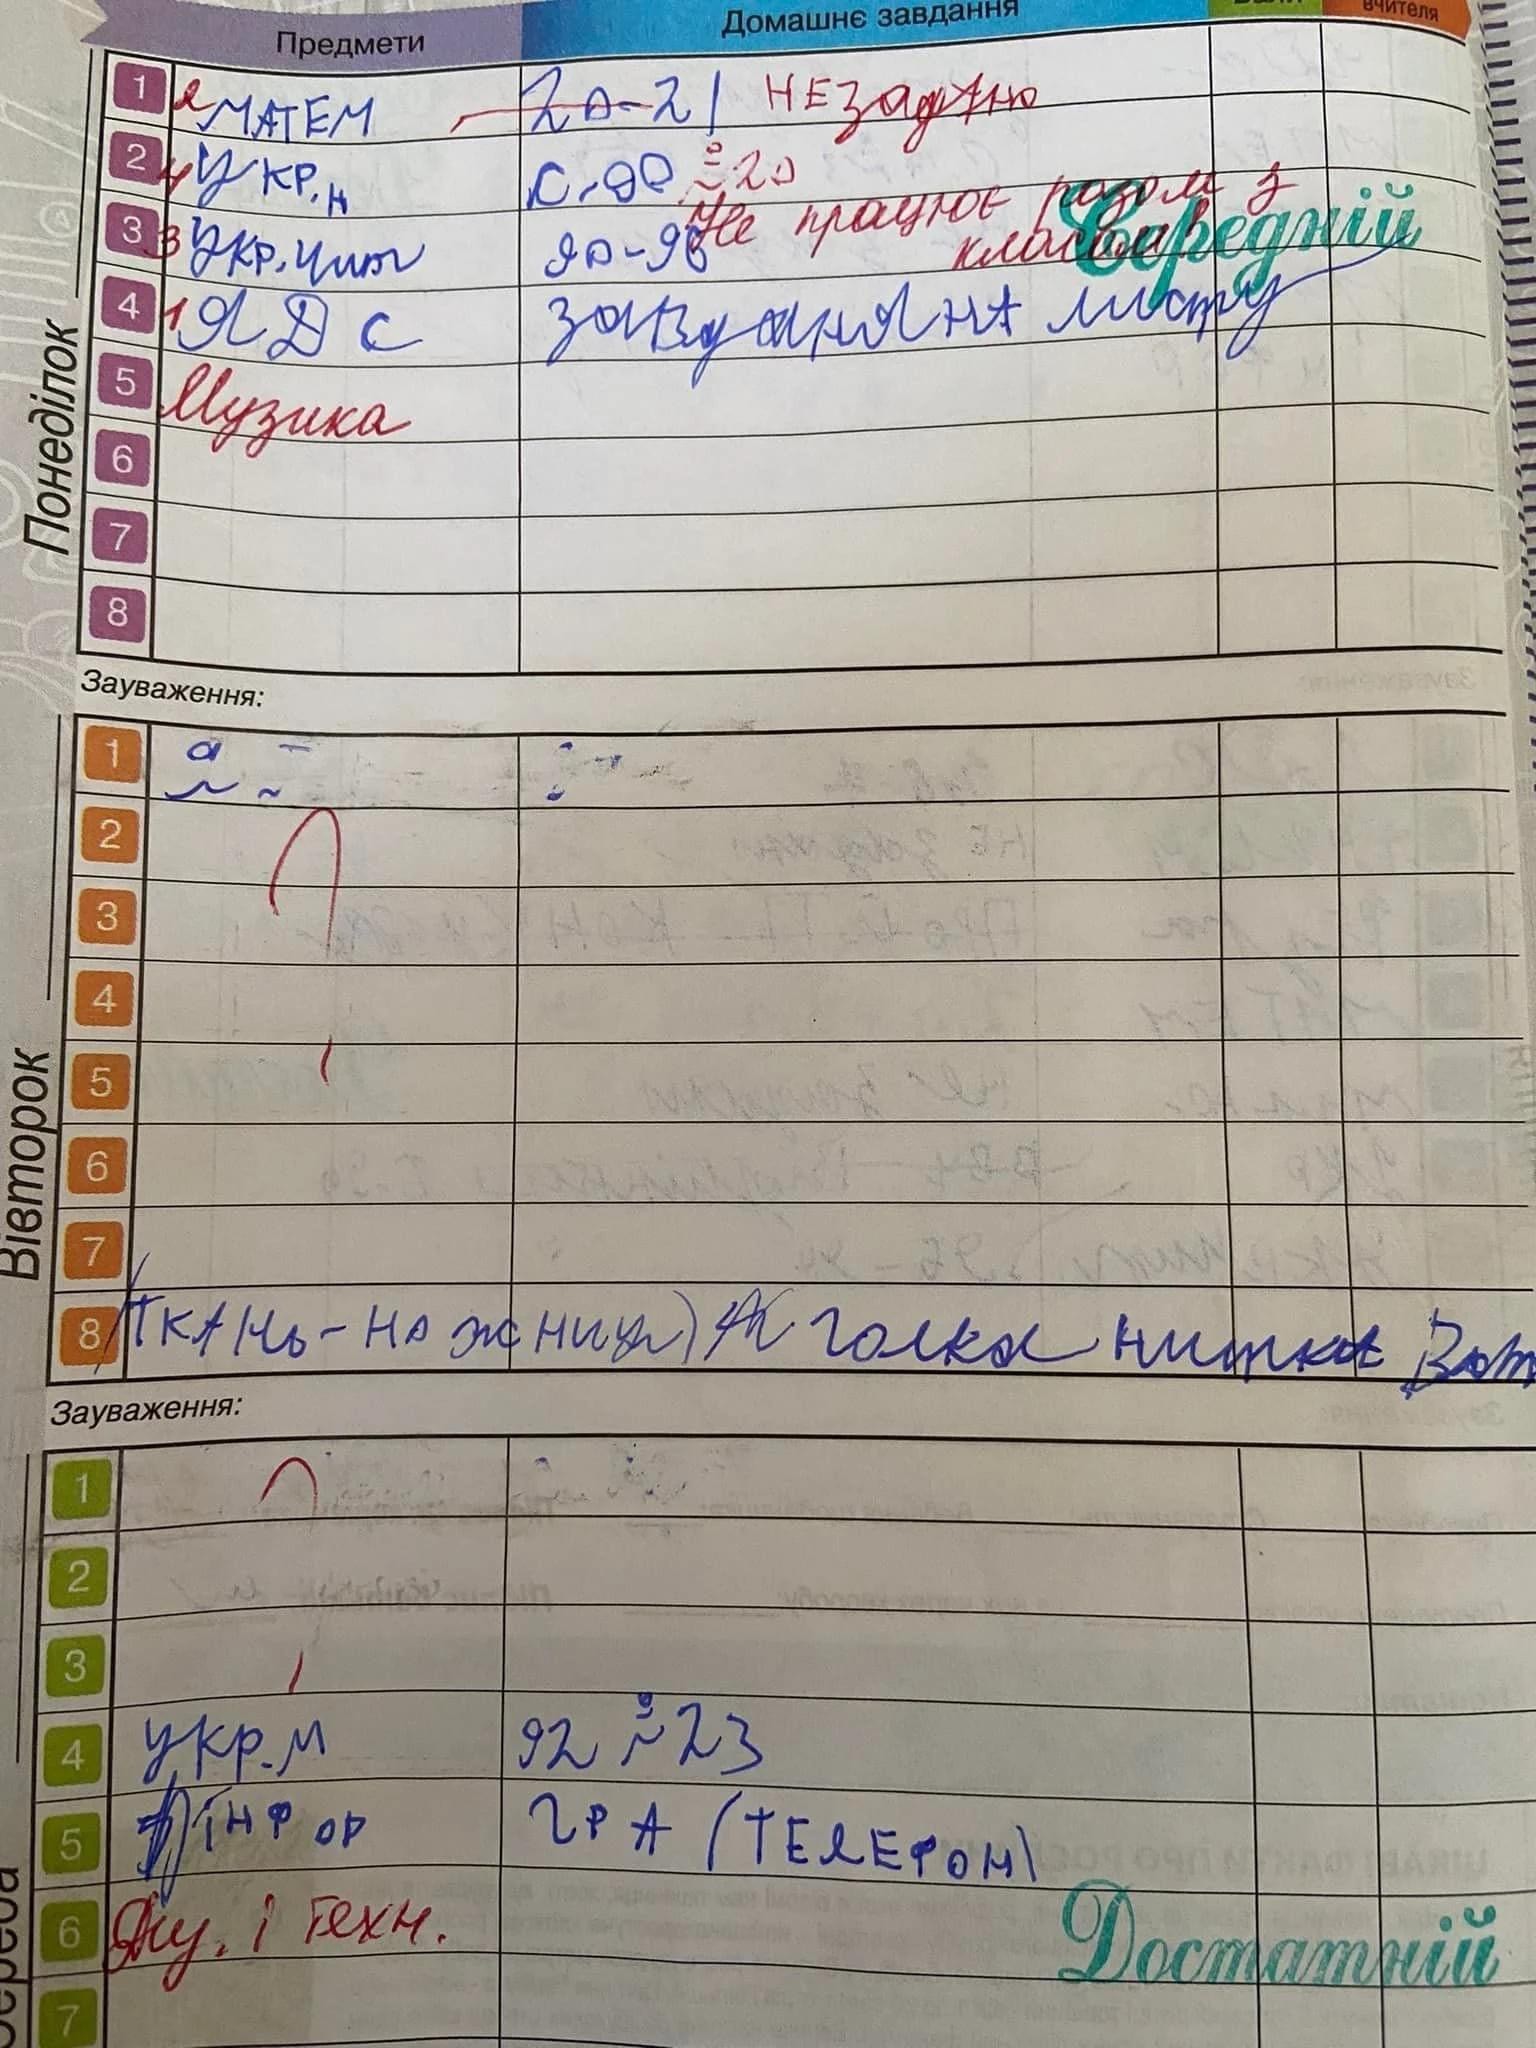 Предмети Домашнє завдання вчителя
Понеділок
1 2 МАТЕМ 20-21 НЕ задано
2 4 Укр. С. 90 20
Не працює разом з
класом
3 3 Укр. чит 90-96 Середній
4 1 ЯДС завдання на листу
5 Музика
6
7
8
Зауваження:
Вівторок
1
2 ?
3
4
5
6
7
8 (ТКАНЬ-на жници) голка нитка Вот
Зауваження:
Середа
1 ?
2
3
4 Укр. м 92 23
5 ІНФОР ГРА (ТЕЛЕФОН)
6 і Техн. Достатній
7